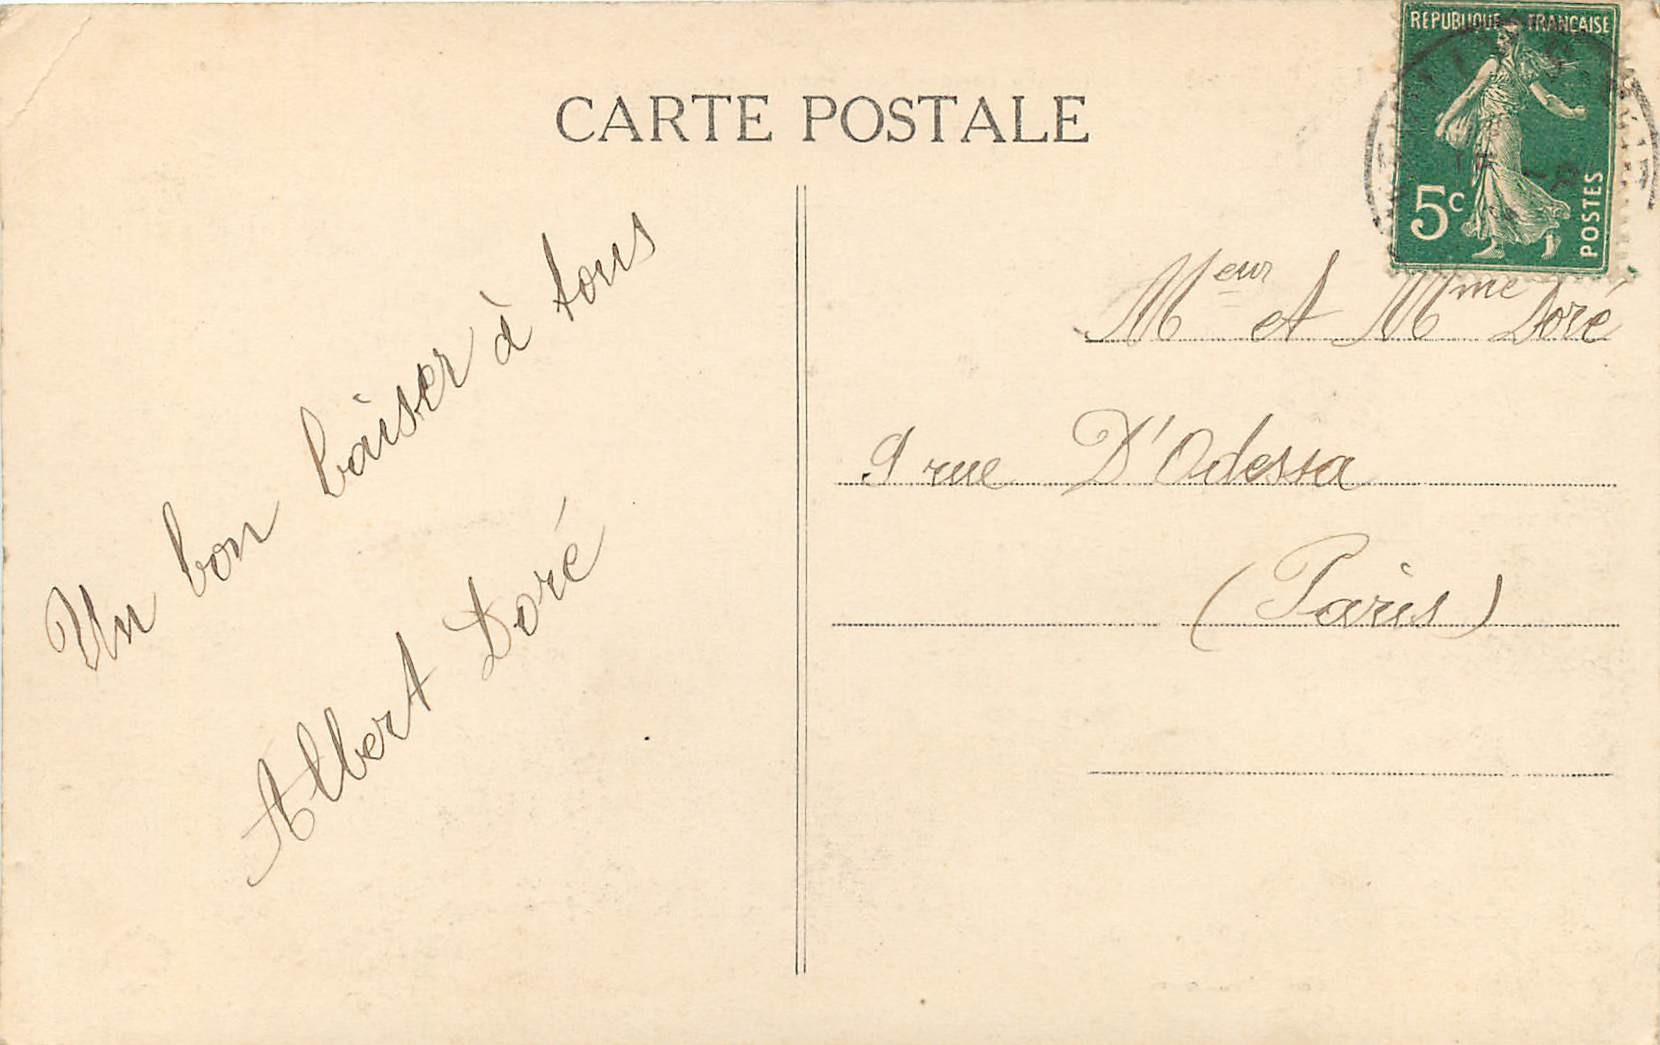 CARTE POSTALE
REPUBLIQUE FRANÇAISE
5c
POSTES
Un bon baiser à tous
Albert Doré
Meur et Mme Doré
9 rue D'Odessa
(Paris)